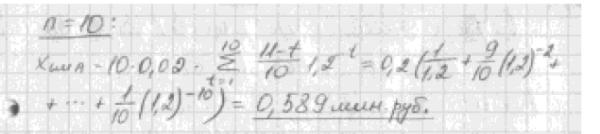 n=10:
Xшл = 10·0,02· ∑_{t=1}^{10} (11-t)/10 1,2^{-t} = 0,2(1/1,2 + 9/10 (1,2)^{-2} +
+ ⋯ + 1/10 (1,2)^{-10}) = 0,589 млн. руб.